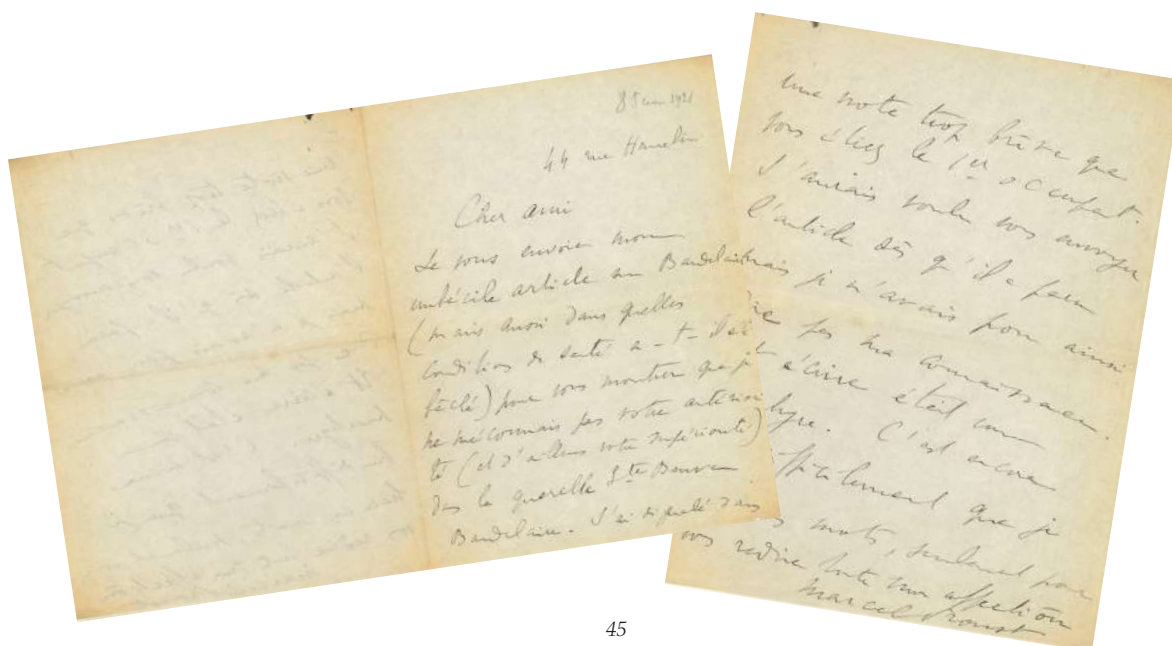 1921
44 rue Hamelin
Cher ami
Je vous envoie mon
imbécile article sur Baudelaire
(mais aussi dans quelles
conditions de santé a-t-il été
bâclé) pour vous montrer que je
ne méconnais pas votre antériori
té (et d'ailleurs votre supériorité)
dans la querelle Ste Beuve
Baudelaire. J'ai signalé dans
une note trop brève que
vous étiez le 1er occupant.
J'aurais voulu vous envoyer
l'article dès qu'il a paru
mais je n'avais pour ainsi
pas ma connaissance.
écrire était un
C'est encore
que je
mots, seulement pour
vous redire toute mon affection
Marcel Proust
45